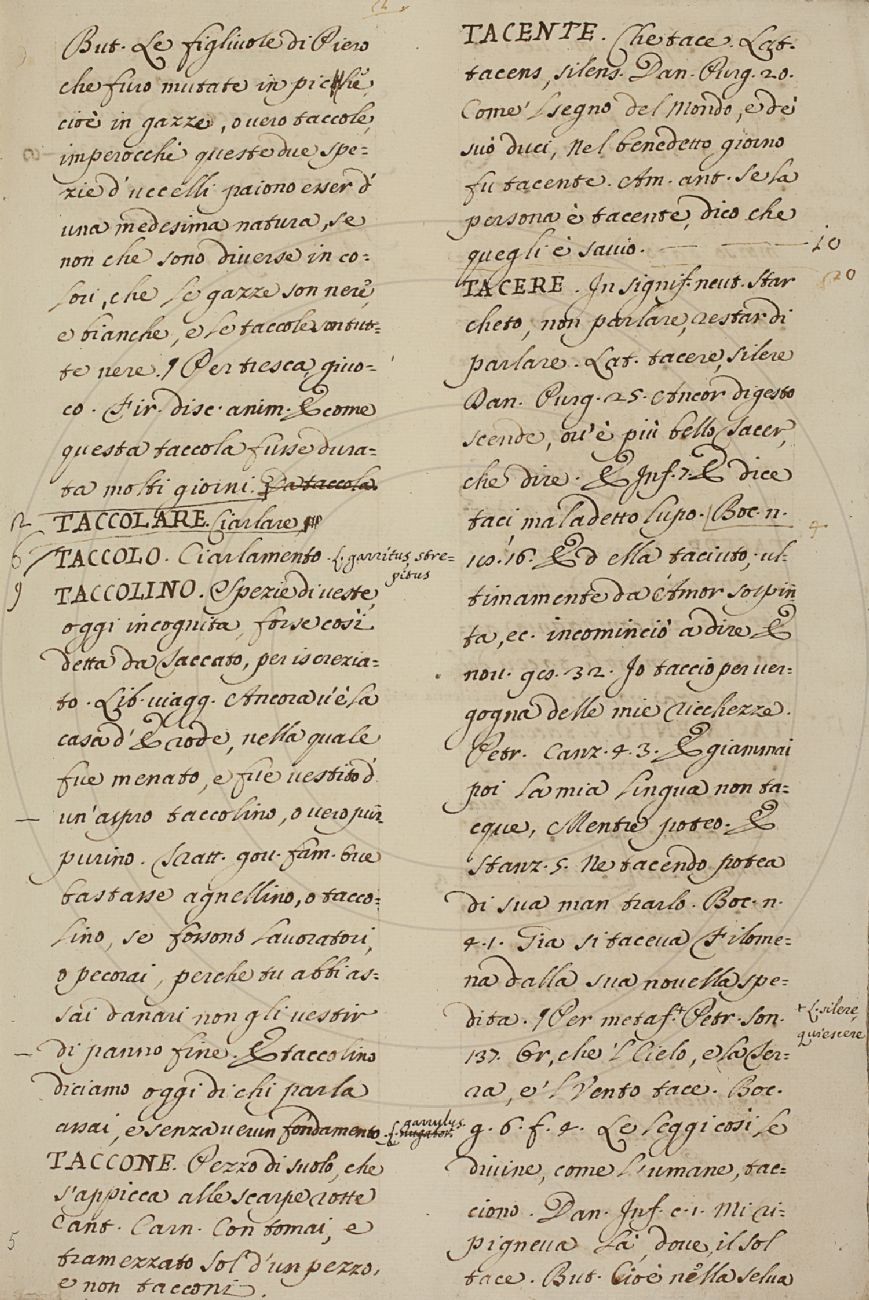 But. Le figliuole di Piero
che furo mutate in piche,
cioè in gazze, o vero taccole,
imperocchè queste due spe=
zie d'uccelli paiono esser d'
una medesima natura, se
non che sono diverse in co=
lori, che le gazze son nere,
e bianche, e le taccole son tut=
te nere. ¶ Per tresca, giuo=
co. Fir. disc. anim. E come
questa taccola fusse dura=
ta molti giorni. Da taccola
2 TACCOLARE. Ciarlare
6 TACCOLO. Ciarlamento. L. garritus, stre=
pitus
9 TACCOLINO. Spezie di veste,
oggi incognita, forse così
detta da Saccato, per iscrezia=
to. Lib. viagg. Ancora v'è la
casa d'Erode, nella quale
fue menato, e fue vestito d'
un'aspro taccolino, o vero pur
purino. Tratt. gov. fam. E ve
bastasse agnellino, o tacco=
lino, se fossono lavoratori,
o pecorai, perchè tu abbi as=
sai danari non gli vestir
di panno fine. E taccolino
diciamo oggi di chi parla
assai, e senza verun fondamento. L. garrulus.
nugator.
TACCONE. Pezzo di suolo, che
s'appicca alle scarpe rotte
Cant. Carn. Con tomai, e
5
tramezzato sol d'un pezzo,
e non tacconi.
TACENTE. Che tace. Lat.
tacens, silens. Dan. Purg. 20.
Come 'l segno del mondo, e de'
suo duci, Nel benedetto giorno
fu tacente. Am. ant. Se la
persona è tacente, dico che
quegli è savio. 10
20
TACERE. In signif. neut. Star
cheto, non parlare, restar di
parlare. Lat. tacere, silere
Dan. Purg. 25. Ancor digesto
scende, ov'è più bello Tacer,
che dire. E Inf. 7. E dice
taci maladetto lupo. Boc. n.
16. 16. Ed ella taciuto, ul=
timamente da Amor sospin
ta, ec. incominciò a dire E
nov. 98. 32. Io taccio per ver=
gogna delle mie ricchezze.
Petr. Canz. 4. 3. E giammai
poi la mia lingua non ta=
cque, Mentre poteo. E
Stanz. 5. Nè tacendo potea
di sua man trarlo. Boc. n.
41. Già si taceva Filome=
na dalla sua novella spe=
dita. ¶ Per metaf. Petr. Son.
+ L. silere,
quiescere
137. Or, che 'l Cielo, e la Ter=
ra, e 'l Vento tace. Boc.
g. 6. f. 4. Le leggi così le
divine, come l'umane, tac=
ciono. Dan. Inf. c. 1. Mi ri=
pigneva là, dove, il sol
tace. But. Cioè nella selva